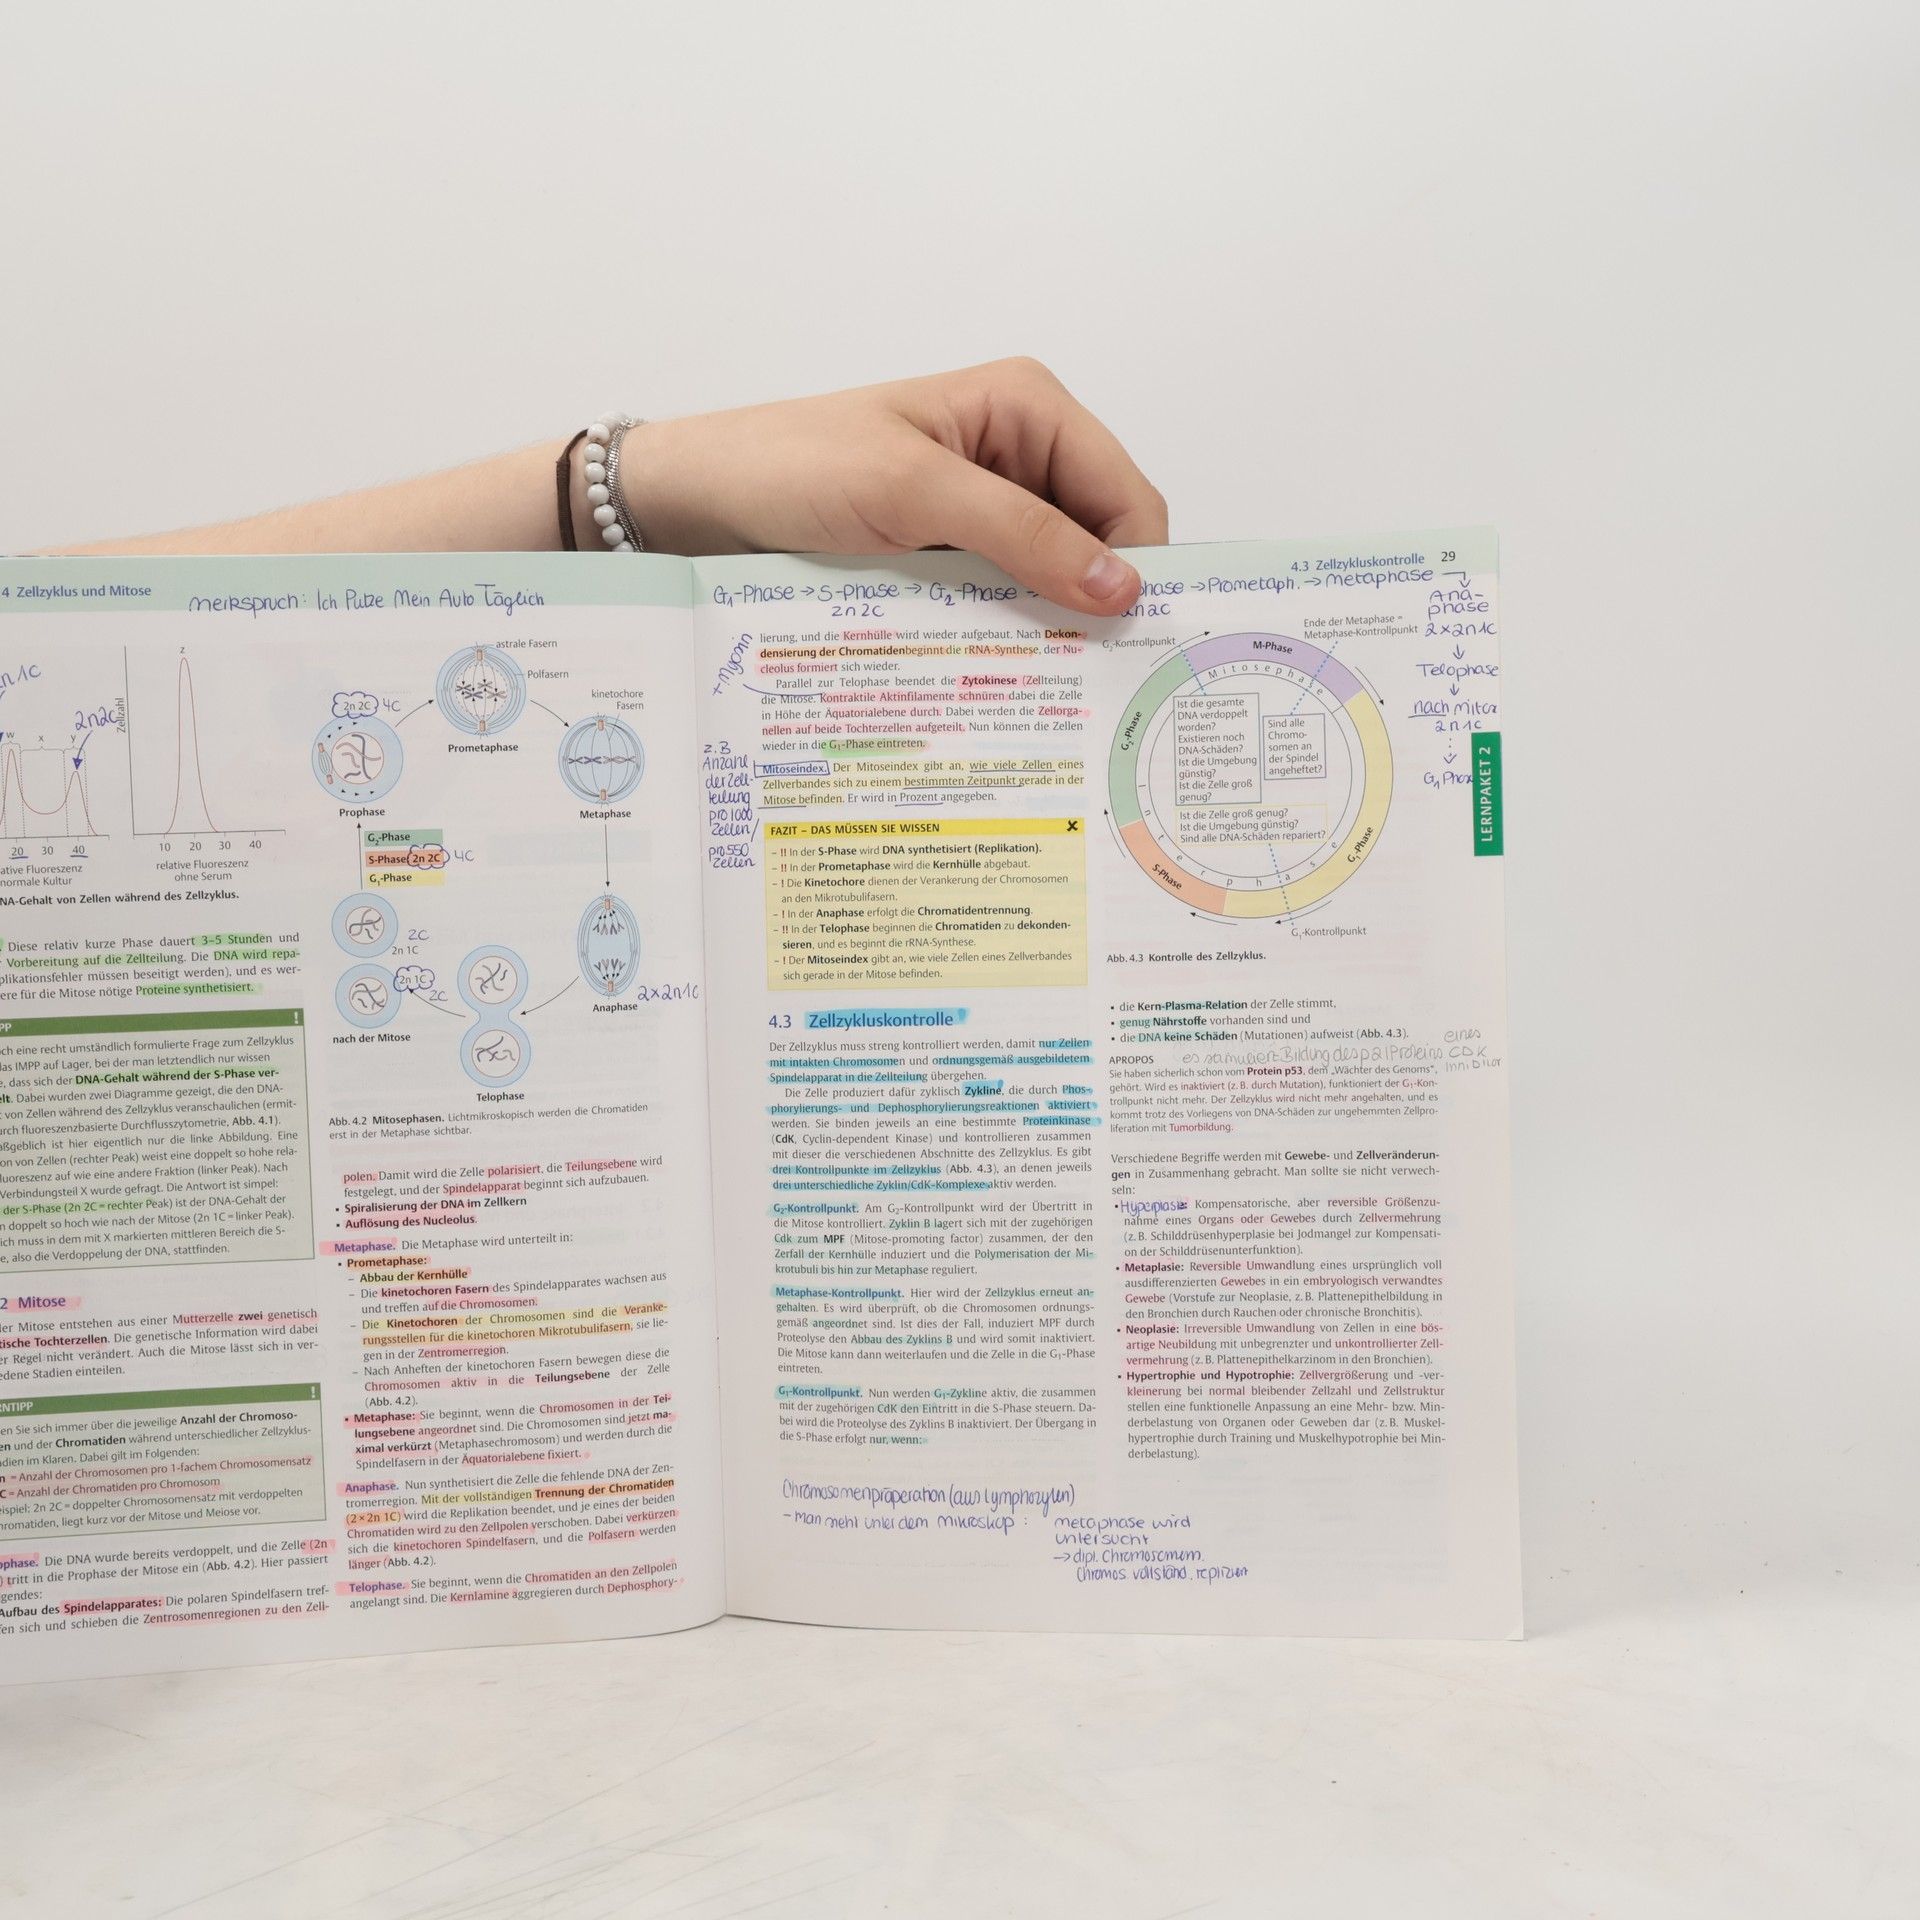 4 Zellzyklus und Mitose
Merkspruch: Ich Putze Mein Auto Täglich
2n2C
w
x
y
Zellzahl
z
20 30 40
10 20 30 40
ative Fluoreszenz
normale Kultur
relative Fluoreszenz
ohne Serum
NA-Gehalt von Zellen während des Zellzyklus.
Diese relativ kurze Phase dauert 3–5 Stunden und
Vorbereitung auf die Zellteilung. Die DNA wird repa-
plikationsfehler müssen beseitigt werden), und es wer-
ere für die Mitose nötige Proteine synthetisiert.
PP !
och eine recht umständlich formulierte Frage zum Zellzyklus
das IMPP auf Lager, bei der man letztendlich nur wissen
e, dass sich der DNA-Gehalt während der S-Phase ver-
elt. Dabei wurden zwei Diagramme gezeigt, die den DNA-
von Zellen während des Zellzyklus veranschaulichen (ermit-
urch fluoreszenzbasierte Durchflusszytometrie, Abb. 4.1).
aßgeblich ist hier eigentlich nur die linke Abbildung. Eine
on von Zellen (rechter Peak) weist eine doppelt so hohe rela-
luoreszenz auf wie eine andere Fraktion (linker Peak). Nach
Verbindungsteil X wurde gefragt. Die Antwort ist simpel:
der S-Phase (2n 2C = rechter Peak) ist der DNA-Gehalt der
n doppelt so hoch wie nach der Mitose (2n 1C = linker Peak).
ich muss in dem mit X markierten mittleren Bereich die S-
e, also die Verdoppelung der DNA, stattfinden.
2 Mitose
der Mitose entstehen aus einer Mutterzelle zwei genetisch
tische Tochterzellen. Die genetische Information wird dabei
er Regel nicht verändert. Auch die Mitose lässt sich in ver-
edene Stadien einteilen.
RNTIPP !
en Sie sich immer über die jeweilige Anzahl der Chromoso-
en und der Chromatiden während unterschiedlicher Zellzyklus-
adien im Klaren. Dabei gilt im Folgenden:
n = Anzahl der Chromosomen pro 1-fachem Chromosomensatz
C = Anzahl der Chromatiden pro Chromosom
eispiel: 2n 2C = doppelter Chromosomensatz mit verdoppelten
hromatiden, liegt kurz vor der Mitose und Meiose vor.
ophase. Die DNA wurde bereits verdoppelt, und die Zelle (2n
) tritt in die Prophase der Mitose ein (Abb. 4.2). Hier passiert
gendes:
Aufbau des Spindelapparates: Die polaren Spindelfasern tref-
fen sich und schieben die Zentrosomenregionen zu den Zell-
astrale Fasern
Polfasern
kinetochore
Fasern
2n 2C 4C
Prometaphase
Prophase
Metaphase
G₂-Phase
S-Phase 2n 2C 4C
G₁-Phase
2C
2n 1C
2n 1C
2C
Anaphase 2x2n1C
nach der Mitose
Telophase
Abb. 4.2 Mitosephasen. Lichtmikroskopisch werden die Chromatiden
erst in der Metaphase sichtbar.
polen. Damit wird die Zelle polarisiert, die Teilungsebene wird
festgelegt, und der Spindelapparat beginnt sich aufzubauen.
• Spiralisierung der DNA im Zellkern
• Auflösung des Nucleolus.
Metaphase. Die Metaphase wird unterteilt in:
• Prometaphase:
– Abbau der Kernhülle
– Die kinetochoren Fasern des Spindelapparates wachsen aus
und treffen auf die Chromosomen.
– Die Kinetochoren der Chromosomen sind die Veranke-
rungsstellen für die kinetochoren Mikrotubulifasern, sie lie-
gen in der Zentromerregion.
– Nach Anheften der kinetochoren Fasern bewegen diese die
Chromosomen aktiv in die Teilungsebene der Zelle
(Abb. 4.2).
• Metaphase: Sie beginnt, wenn die Chromosomen in der Tei-
lungsebene angeordnet sind. Die Chromosomen sind jetzt ma-
ximal verkürzt (Metaphasechromosom) und werden durch die
Spindelfasern in der Äquatorialebene fixiert.
Anaphase. Nun synthetisiert die Zelle die fehlende DNA der Zen-
tromerregion. Mit der vollständigen Trennung der Chromatiden
(2 × 2n 1C) wird die Replikation beendet, und je eines der beiden
Chromatiden wird zu den Zellpolen verschoben. Dabei verkürzen
sich die kinetochoren Spindelfasern, und die Polfasern werden
länger (Abb. 4.2).
Telophase. Sie beginnt, wenn die Chromatiden an den Zellpolen
angelangt sind. Die Kernlamine aggregieren durch Dephosphory-
4.3 Zellzykluskontrolle 29
G₁-Phase → S-Phase → G₂-Phase → phase → Prometaph. → Metaphase
2n2C 2n2C
Ana-
phase
2x2n1C
↓
Telophase
↓
nach Mitose
2n1C
G₁ Phase
+ Myosin
lierung, und die Kernhülle wird wieder aufgebaut. Nach Dekon-
densierung der Chromatidenbeginnt die rRNA-Synthese, der Nu-
cleolus formiert sich wieder.
Parallel zur Telophase beendet die Zytokinese (Zellteilung)
die Mitose. Kontraktile Aktinfilamente schnüren dabei die Zelle
in Höhe der Äquatorialebene durch. Dabei werden die Zellorga-
nellen auf beide Tochterzellen aufgeteilt. Nun können die Zellen
wieder in die G₁-Phase eintreten.
z.B
Anzahl
der Zell-
teilung
pro 1000
Zellen/
pro 550
Zellen
Mitoseindex. Der Mitoseindex gibt an, wie viele Zellen eines
Zellverbandes sich zu einem bestimmten Zeitpunkt gerade in der
Mitose befinden. Er wird in Prozent angegeben.
FAZIT – DAS MÜSSEN SIE WISSEN
– !! In der S-Phase wird DNA synthetisiert (Replikation).
– !! In der Prometaphase wird die Kernhülle abgebaut.
– ! Die Kinetochore dienen der Verankerung der Chromosomen
an den Mikrotubulifasern.
– ! In der Anaphase erfolgt die Chromatidentrennung.
– !! In der Telophase beginnen die Chromatiden zu dekonden-
sieren, und es beginnt die rRNA-Synthese.
– ! Der Mitoseindex gibt an, wie viele Zellen eines Zellverbandes
sich gerade in der Mitose befinden.
4.3 Zellzykluskontrolle
Der Zellzyklus muss streng kontrolliert werden, damit nur Zellen
mit intakten Chromosomen und ordnungsgemäß ausgebildetem
Spindelapparat in die Zellteilung übergehen.
Die Zelle produziert dafür zyklisch Zykline, die durch Phos-
phorylierungs- und Dephosphorylierungsreaktionen aktiviert
werden. Sie binden jeweils an eine bestimmte Proteinkinase
(CdK, Cyclin-dependent Kinase) und kontrollieren zusammen
mit dieser die verschiedenen Abschnitte des Zellzyklus. Es gibt
drei Kontrollpunkte im Zellzyklus (Abb. 4.3), an denen jeweils
drei unterschiedliche Zyklin/CdK-Komplexe aktiv werden.
G₂-Kontrollpunkt. Am G₂-Kontrollpunkt wird der Übertritt in
die Mitose kontrolliert. Zyklin B lagert sich mit der zugehörigen
Cdk zum MPF (Mitose-promoting factor) zusammen, der den
Zerfall der Kernhülle induziert und die Polymerisation der Mi-
krotubuli bis hin zur Metaphase reguliert.
Metaphase-Kontrollpunkt. Hier wird der Zellzyklus erneut an-
gehalten. Es wird überprüft, ob die Chromosomen ordnungs-
gemäß angeordnet sind. Ist dies der Fall, induziert MPF durch
Proteolyse den Abbau des Zyklins B und wird somit inaktiviert.
Die Mitose kann dann weiterlaufen und die Zelle in die G₁-Phase
eintreten.
G₁-Kontrollpunkt. Nun werden G₁-Zykline aktiv, die zusammen
mit der zugehörigen CdK den Eintritt in die S-Phase steuern. Da-
bei wird die Proteolyse des Zyklins B inaktiviert. Der Übergang in
die S-Phase erfolgt nur, wenn:
G₂-Kontrollpunkt
Ende der Metaphase =
Metaphase-Kontrollpunkt
M-Phase
Mitosephase
G₂-Phase
Ist die gesamte
DNA verdoppelt
worden?
Existieren noch
DNA-Schäden?
Ist die Umgebung
günstig?
Ist die Zelle groß
genug?
Sind alle
Chromo-
somen an
der Spindel
angeheftet?
Ist die Zelle groß genug?
Ist die Umgebung günstig?
Sind alle DNA-Schäden repariert?
G₁-Phase
S-Phase
Interphase
G₁-Kontrollpunkt
LERNPAKET 2
Abb. 4.3 Kontrolle des Zellzyklus.
• die Kern-Plasma-Relation der Zelle stimmt,
• genug Nährstoffe vorhanden sind und
• die DNA keine Schäden (Mutationen) aufweist (Abb. 4.3).
es stimuliert Bildung des p21 Proteins eines
CDK
Inhibitor
APROPOS
Sie haben sicherlich schon vom Protein p53, dem „Wächter des Genoms“,
gehört. Wird es inaktiviert (z. B. durch Mutation), funktioniert der G₁-Kon-
trollpunkt nicht mehr. Der Zellzyklus wird nicht mehr angehalten, und es
kommt trotz des Vorliegens von DNA-Schäden zur ungehemmten Zellpro-
liferation mit Tumorbildung.
Verschiedene Begriffe werden mit Gewebe- und Zellveränderun-
gen in Zusammenhang gebracht. Man sollte sie nicht verwech-
seln:
• Hyperplasie: Kompensatorische, aber reversible Größenzu-
nahme eines Organs oder Gewebes durch Zellvermehrung
(z. B. Schilddrüsenhyperplasie bei Jodmangel zur Kompensati-
on der Schilddrüsenunterfunktion).
• Metaplasie: Reversible Umwandlung eines ursprünglich voll
ausdifferenzierten Gewebes in ein embryologisch verwandtes
Gewebe (Vorstufe zur Neoplasie, z. B. Plattenepithelbildung in
den Bronchien durch Rauchen oder chronische Bronchitis).
• Neoplasie: Irreversible Umwandlung von Zellen in eine bös-
artige Neubildung mit unbegrenzter und unkontrollierter Zell-
vermehrung (z. B. Plattenepithelkarzinom in den Bronchien).
• Hypertrophie und Hypotrophie: Zellvergrößerung und -ver-
kleinerung bei normal bleibender Zellzahl und Zellstruktur
stellen eine funktionelle Anpassung an eine Mehr- bzw. Min-
derbelastung von Organen oder Geweben dar (z. B. Muskel-
hypertrophie durch Training und Muskelhypotrophie bei Min-
derbelastung).
Chromosomenpräperation (aus Lymphozyten)
– Man sieht unter dem Mikroskop: Metaphase wird
untersucht
→ dipl. Chromosomen.
Chromos. vollständ. repliziert